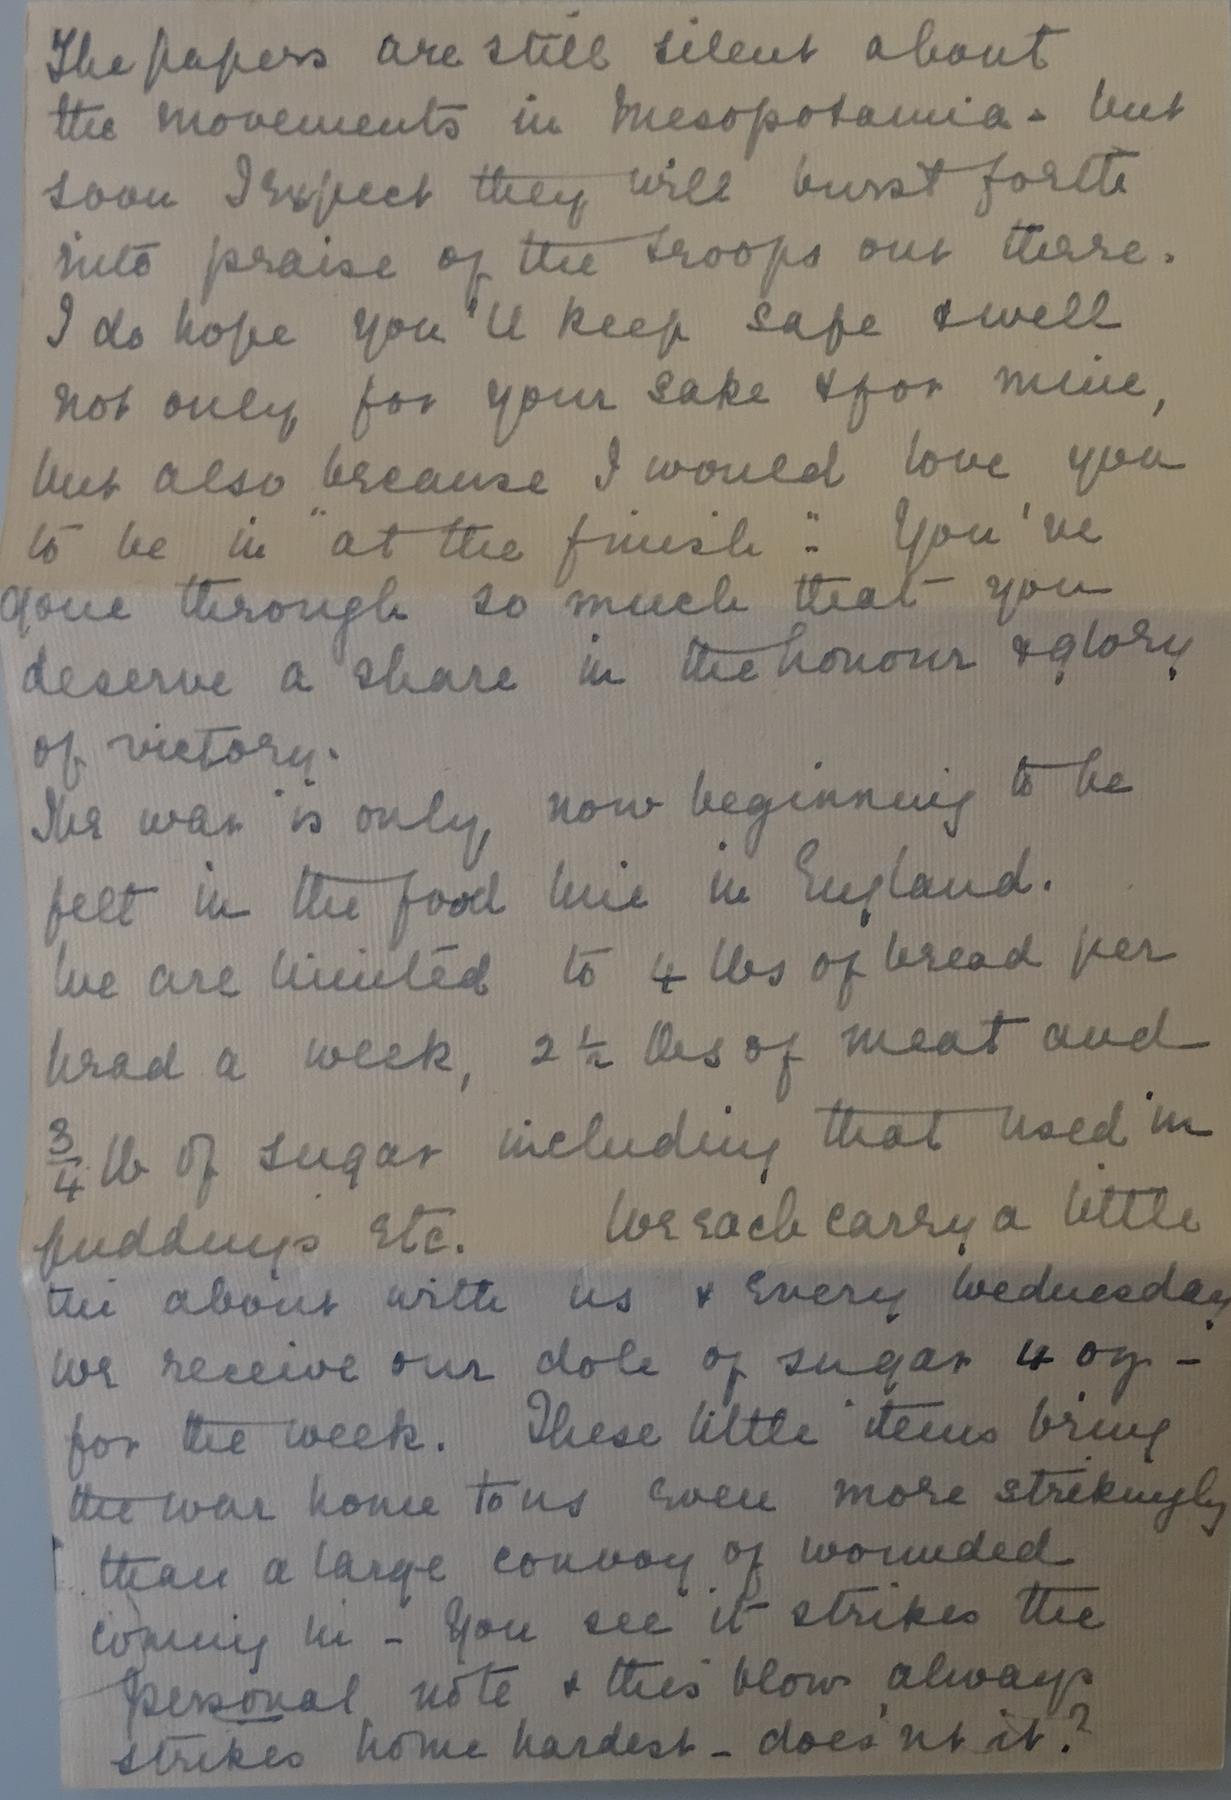 The papers are still silent about
the movements in Mesopotamia - but
soon I expect they will burst forth
into praise of the troops out there.
I do hope you'll keep safe & well
not only for your sake & for mine,
but also because I would love you
to be in "at the finish". You've
gone through so much that you
deserve a share in the honour & glory
of victory.
The war is only now beginning to be
felt in the food line in England.
We are limited to 4 lbs of bread per
head a week, 2½ lbs of meat and
¾ lb of sugar including that used in
puddings etc. We each carry a little
tin about with us & every Wednesday
we receive our dole of sugar 4 oz -
for the week. These little items bring
the war home to us even more strikingly
than a large convoy of wounded
coming in - You see it strikes the
personal note & this blow always
strikes home hardest - does'nt it?